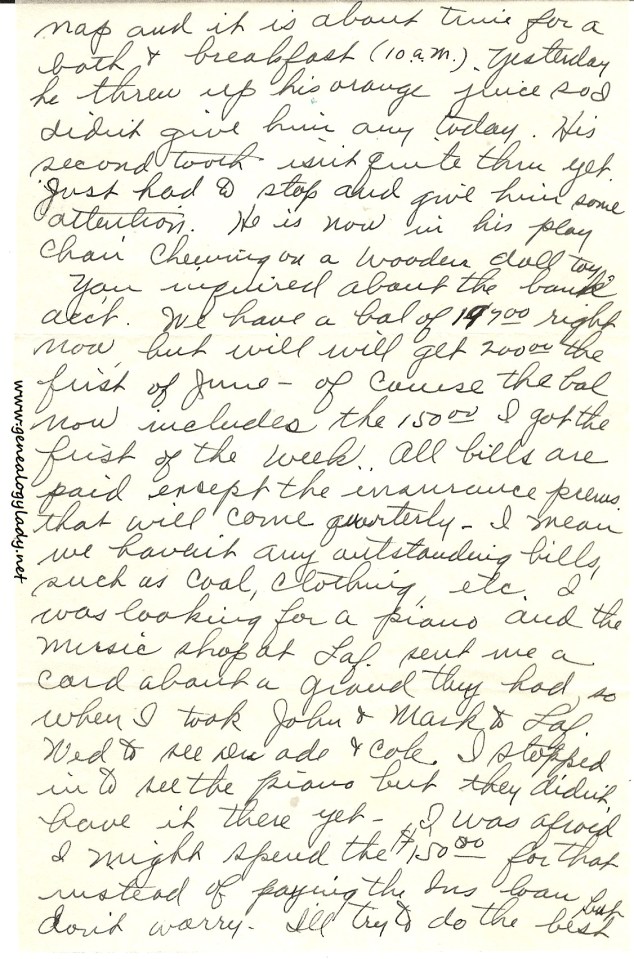 nap and it is about time for a
bath & breakfast (10 a.m.). Yesterday
he threw up his orange juice so I
didn't give him any today. His
second tooth isn't quite thru yet.
Just had to stop and give him some
attention. He is now in his play
chair chewing on a wooden doll toy.
You inquired about the bank
acct. We have a bal of 197 00 right
now, but will will get 200 00 the
first of June – of course the bal
now includes the 150 00 I got the
first of the week. All bills are
paid except the insurance prems
that will come quarterly – I mean
we haven't any outstanding bills,
such as coal, clothing, etc. I
was looking for a piano and the
music shop at Laf. sent me a
card about a grand they had, so
when I took John & Mark to Laf.
Wed to see Drs Ade & Cole. I stopped
in to see the piano but they didn't
have it there yet – I was afraid
I might spend the $150 00 for that
instead of paying the Ins loan but
don't worry – I'll try to do the best
www.genealogylady.net